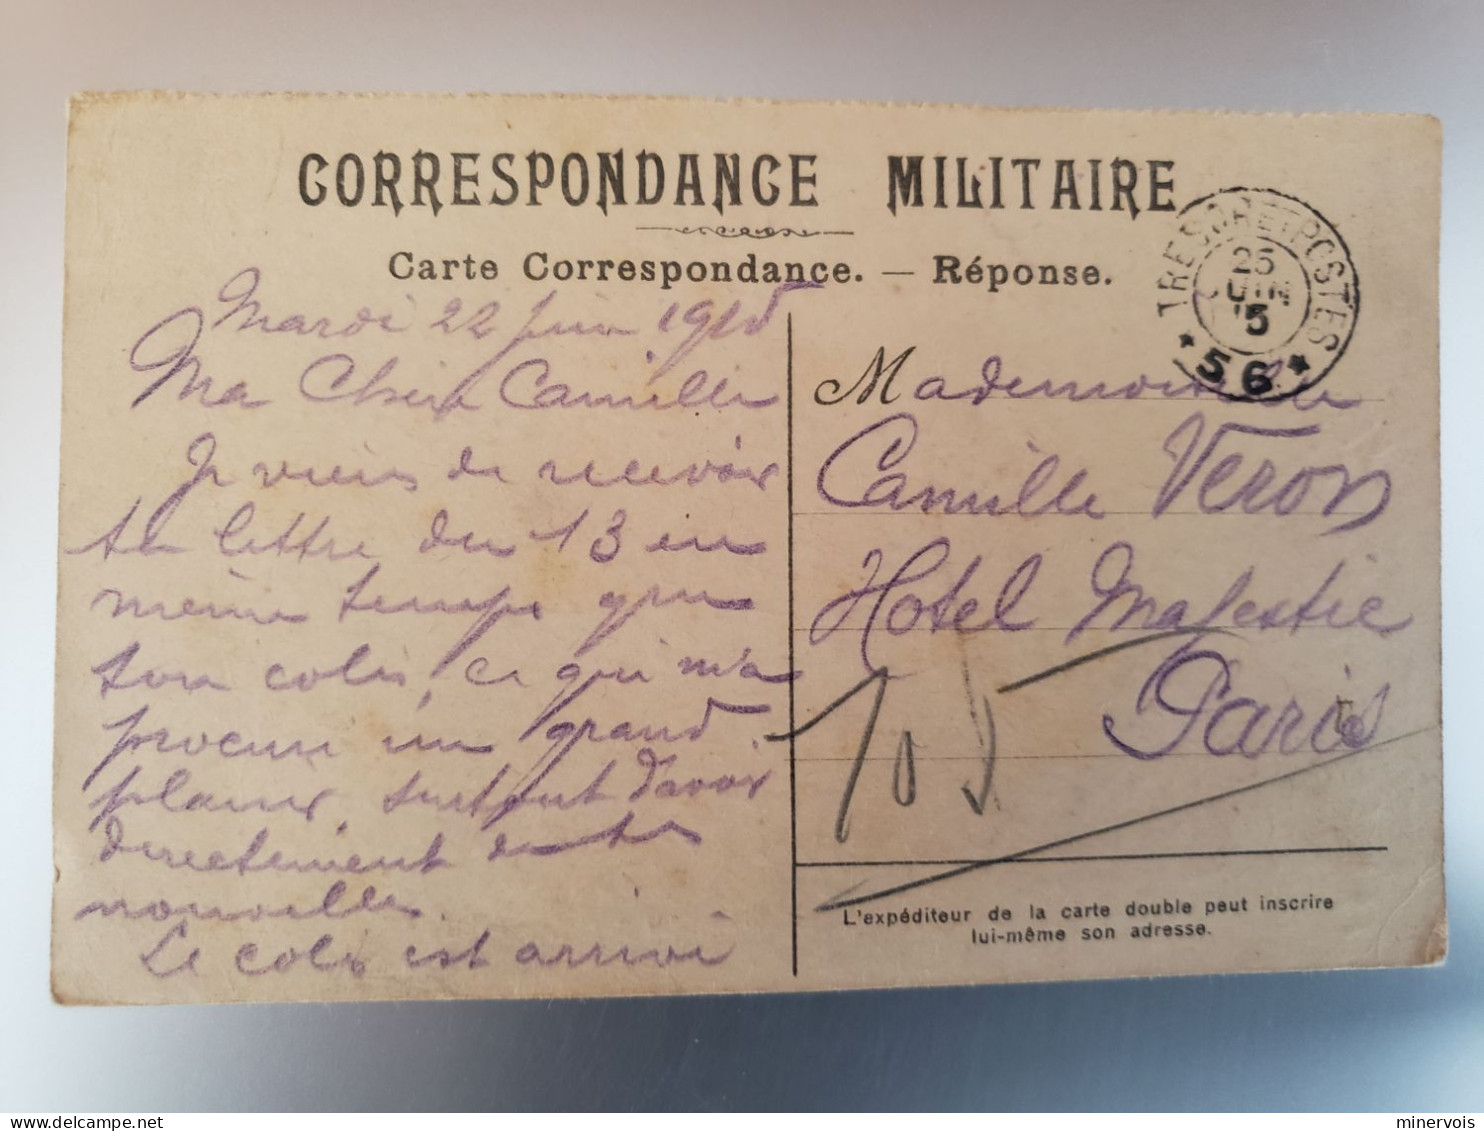 CORRESPONDANCE MILITAIRE
Carte Correspondance. — Réponse.
TRESOR ET POSTES
25
JUIN
15
* 56 *
Mardi 22 Juin 1915
Ma Chère Camille
Je viens de recevoir
ta lettre du 13 en
même temps que
ton colis, ce qui m'a
procuré un grand
plaisir, surtout d'avoir
directement de tes
nouvelles.
Le colis est arrivé
Mademoiselle
Camille Veron
Hotel Majestic
Paris
105
L'expéditeur de la carte double peut inscrire
lui-même son adresse.
minervois